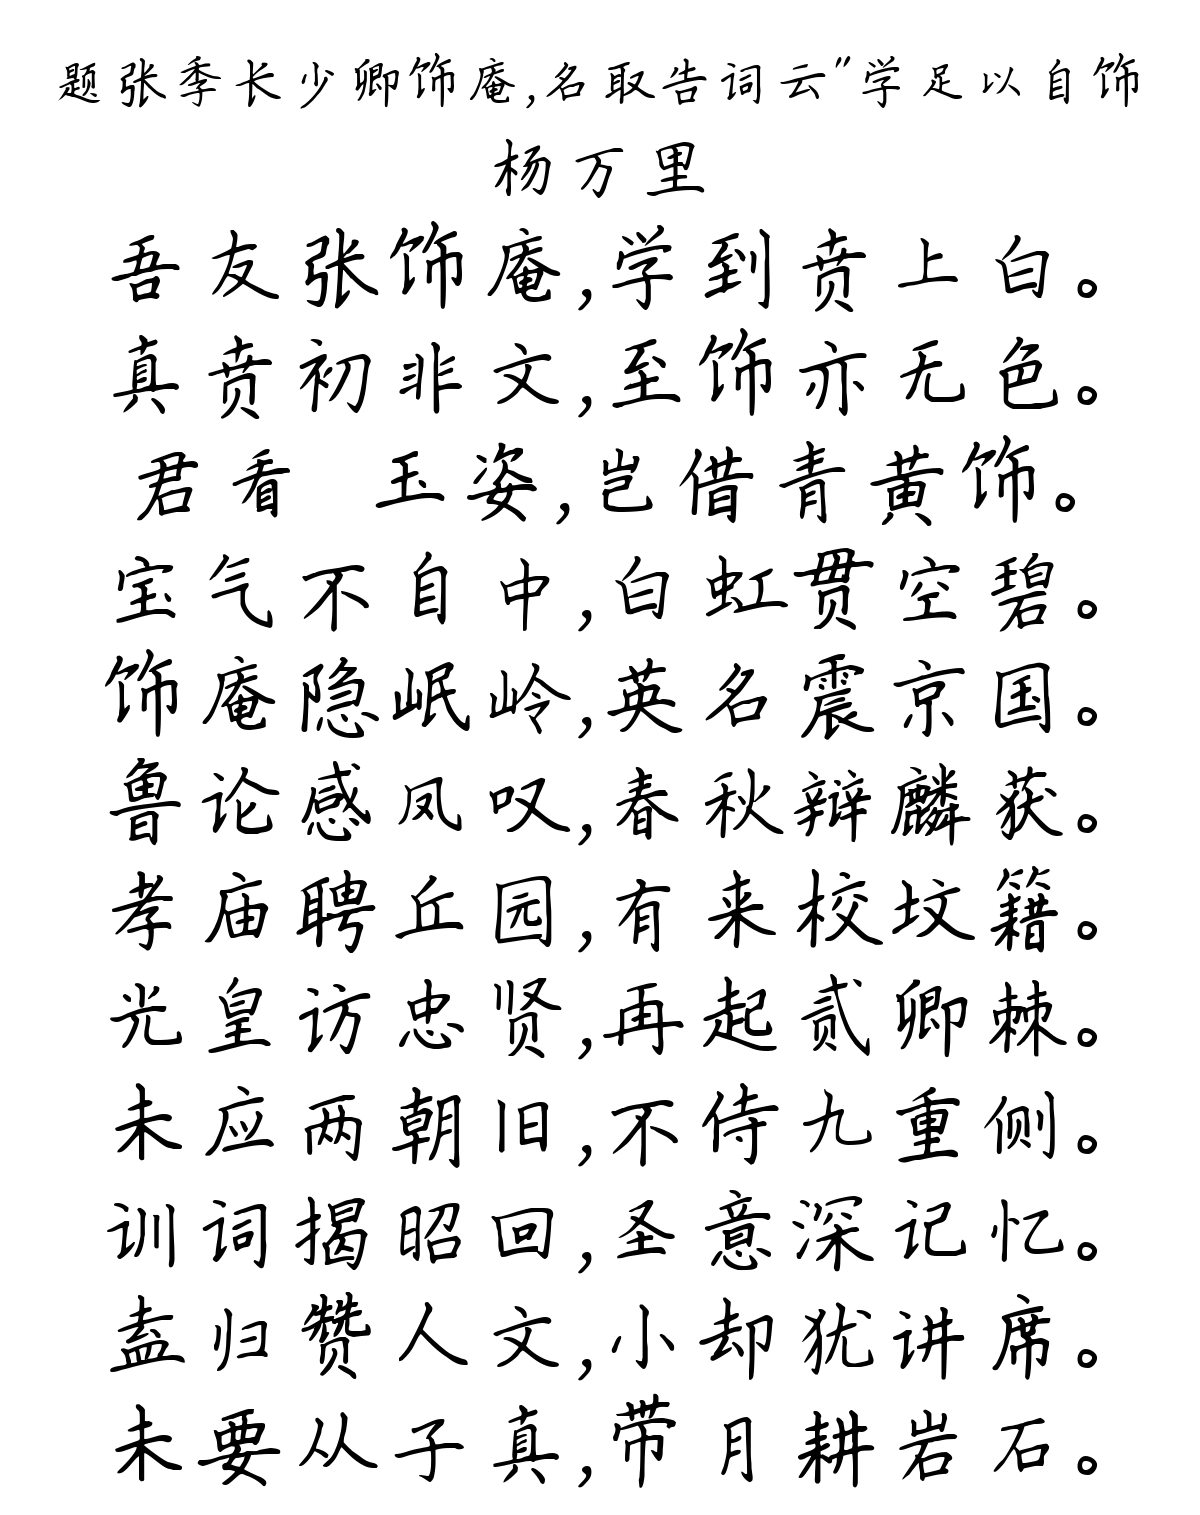 题张季长少卿饰庵,名取告词云"学足以自饰
杨万里
吾友张饰庵,学到贲上白。
真贲初非文,至饰亦无色。
君看 玉姿,岂借青黄饰。
宝气不自中,白虹贯空碧。
饰庵隐岷岭,英名震京国。
鲁论感凤叹,春秋辩麟获。
孝庙聘丘园,有来校坟籍。
光皇访忠贤,再起贰卿棘。
未应两朝旧,不侍九重侧。
训词揭昭回,圣意深记忆。
盍归赞人文,小却犹讲席。
未要从子真,带月耕岩石。